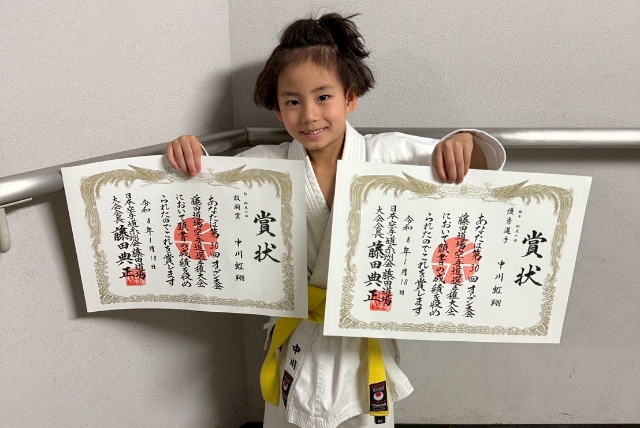 賞状
敢闘賞
中川虹翔
あなたは第30回オープン大会
藤田道場空手道選手権大会
において頭書の成績を収め
られたのでこれを賞します
令和8年1月18日
日本空手道
藤田道場
大会会長 藤田典正
賞状
優秀選手
中川虹翔
あなたは第30回オープン大会
藤田道場空手道選手権大会
において頭書の成績を収め
られたのでこれを賞します
令和8年1月18日
日本空手道
藤田道場
大会会長 藤田典正
中川